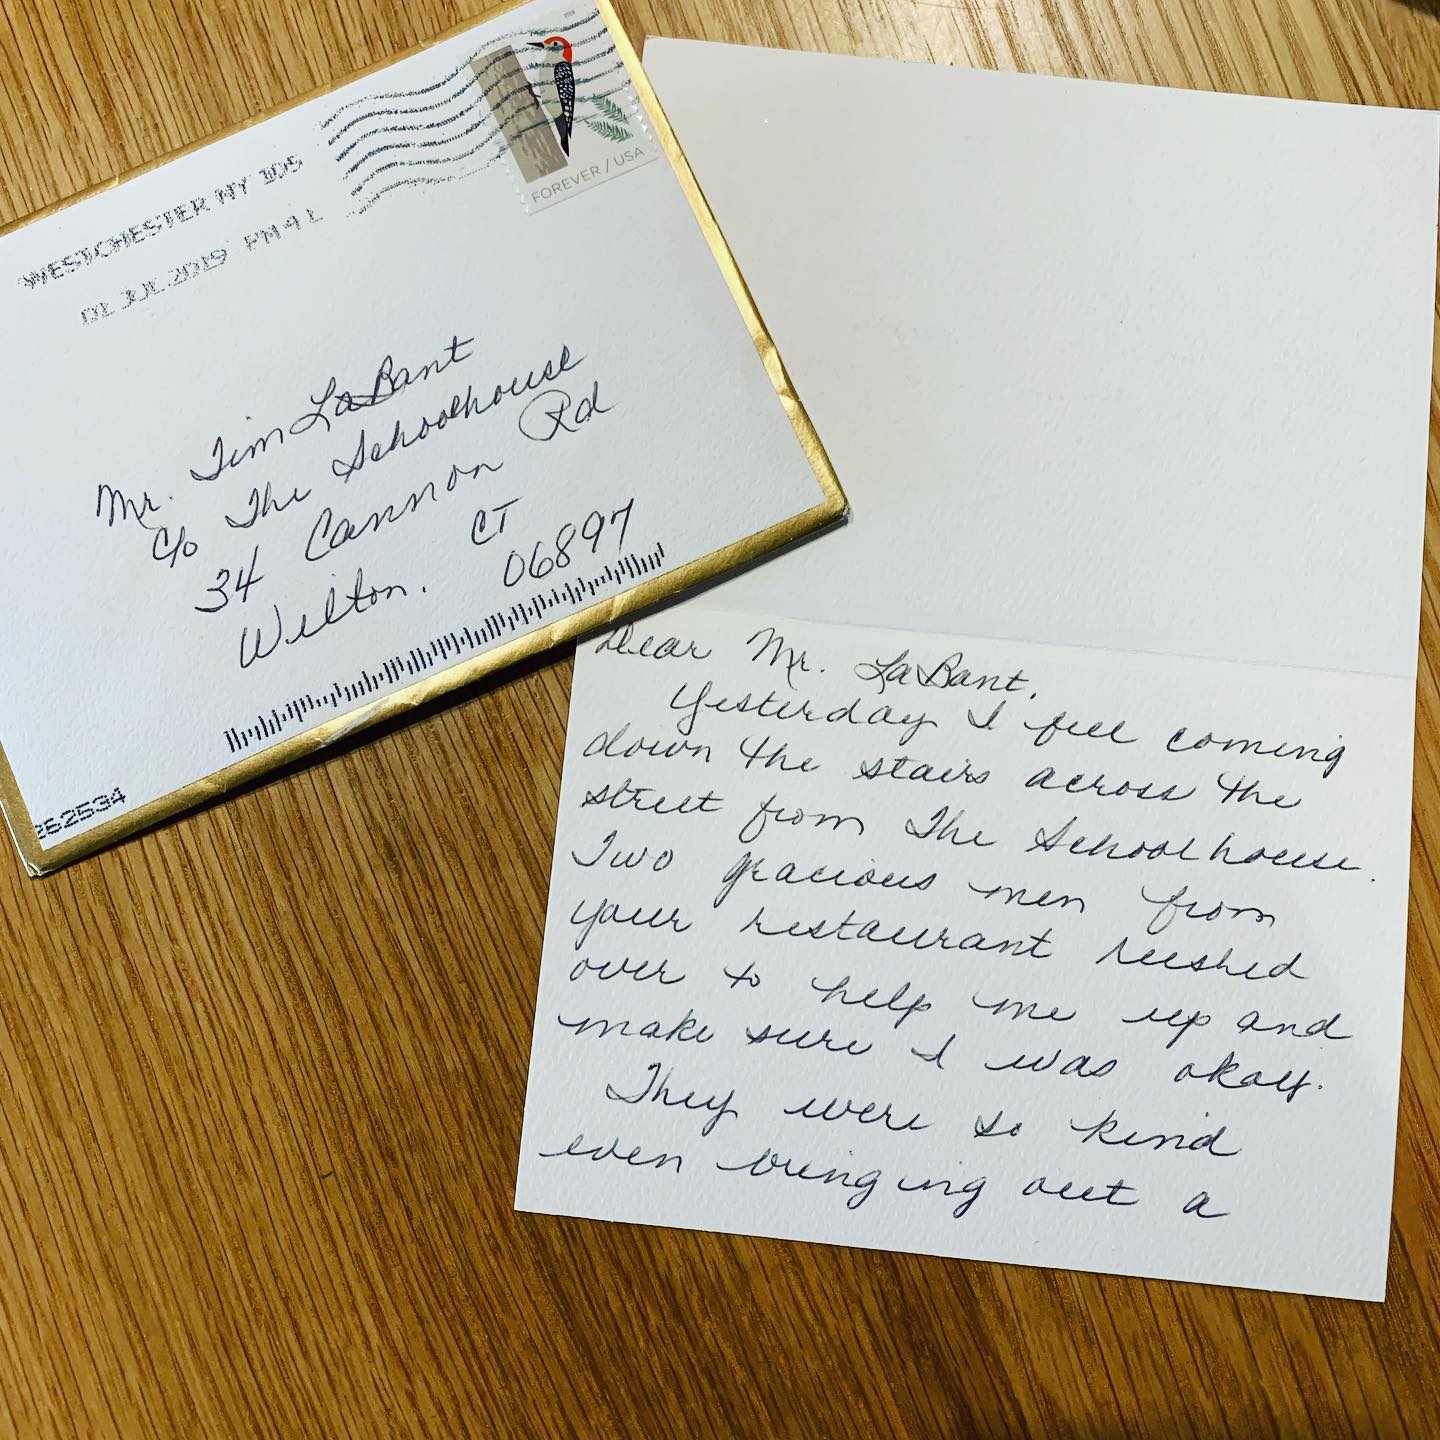 WESTCHESTER NY 105
01 JUL 2019 PM 4 L
FOREVER / USA
Mr. Tim LaBant
c/o The Schoolhouse
34 Cannon Rd
Wilton. CT
06897
262534
Dear Mr. LaBant,
Yesterday I fell coming
down the stairs across the
street from The Schoolhouse.
Two gracious men from
your restaurant rushed
over to help me up and
make sure I was okay.
They were so kind
even bringing out a